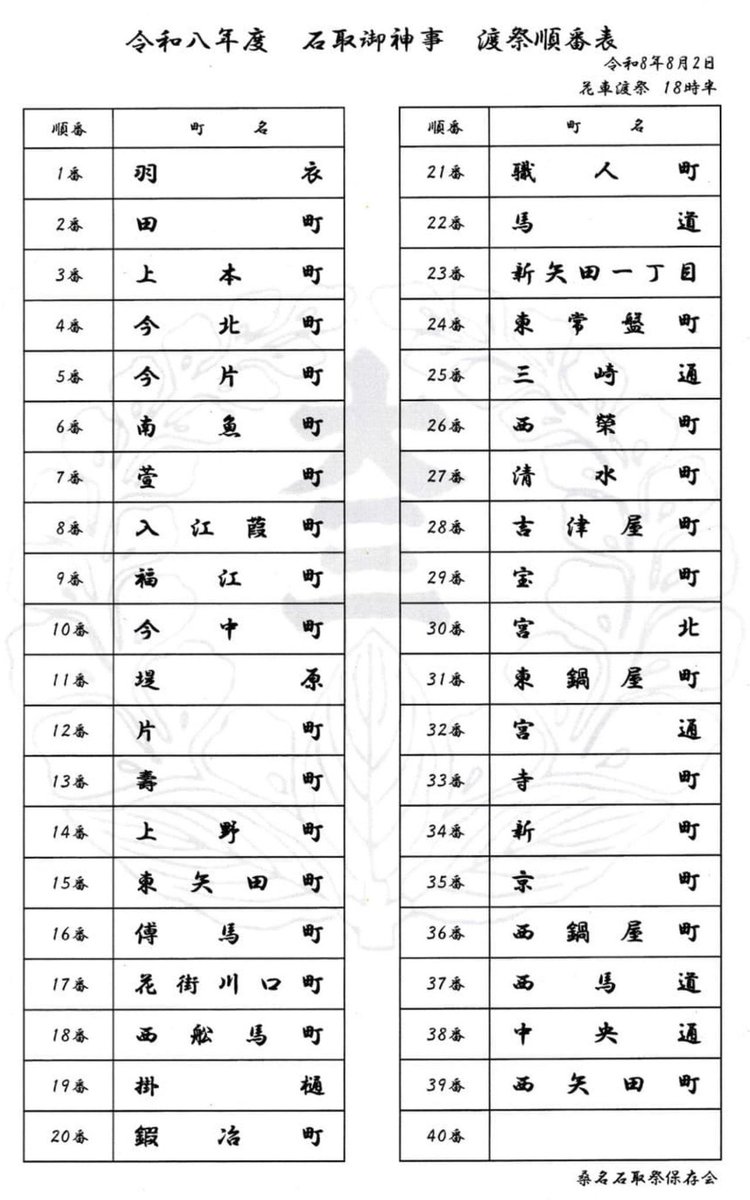 令和八年度 石取御神事 渡祭順番表
令和8年8月2日
花車渡祭 18時半
順番 町名
1番 羽衣
2番 田町
3番 上本町
4番 今北町
5番 今片町
6番 南魚町
7番 萱町
8番 入江葭町
9番 福江町
10番 今中町
11番 堤原
12番 片町
13番 壽町
14番 上野町
15番 東矢田町
16番 傳馬町
17番 花街川口町
18番 西舩馬町
19番 掛樋
20番 鍛冶町
順番 町名
21番 職人町
22番 馬道
23番 新矢田一丁目
24番 東常盤町
25番 三崎通
26番 西榮町
27番 清水町
28番 吉津屋町
29番 宝町
30番 宮北
31番 東鍋屋町
32番 宮通
33番 寺町
34番 新町
35番 京町
36番 西鍋屋町
37番 西馬道
38番 中央通
39番 西矢田町
40番
大
三
桑名石取祭保存会